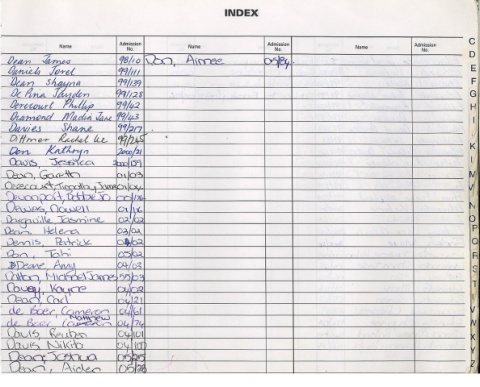 INDEX
Name Admission No. Name Admission No. Name Admission No.
Dean James 98/10 Don, Aimee 05/84
Daniels Jorel 99/111
Dean Shayna 99/139
De Ana Jayden 99/128
Derecourt Phillip 99/42
Desmond Madia Jane 99/43
Davies Shane 99/217
Dittmer Rachel Lee 99/245
Don Kathryn 2000/21
Davis, Jessica 2000/129
Dean, Gareth 01/03
Derecourt, Timothy, James 01/04
Davenport, Debbie Jo
Dawes, Nowell
Jasmine 02/02
Dean, Helena 03/01
Dennis, Patrick 04/02
Don, Tahi 03/02
Deane, Amy 04/02
Dalton, Michael James 50/03
Davey, Kayne 04/02
Dean Carl 04/21
de Boer, Cameron 04/61
Matthew
de Boer, Cameron 04/74
Davis, Reuben 04/101
Davis Nikita 04/100
Dean, Joshua 05/25
Dean, Aiden 05/28
C
D
E
F
G
H
I
K
L
M
N
O
P
Q
R
S
T
V
W
X
Y
Z